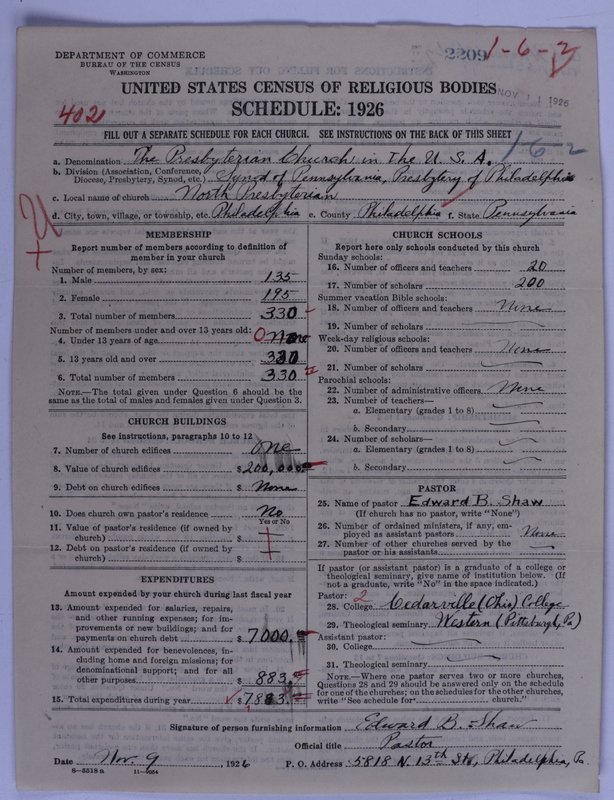 DEPARTMENT OF COMMERCE
BUREAU OF THE CENSUS
WASHINGTON
2209
1-6-2
UNITED STATES CENSUS OF RELIGIOUS BODIES
NOV 1 1926
402
SCHEDULE: 1926
FILL OUT A SEPARATE SCHEDULE FOR EACH CHURCH. SEE INSTRUCTIONS ON THE BACK OF THIS SHEET
16-2
a. Denomination The Presbyterian Church in The U. S. A.
b. Division (Association, Conference, Diocese, Presbytery, Synod, etc.) Synod of Pennsylvania, Presbytery of Philadelphia
c. Local name of church North Presbyterian
d. City, town, village, or township, etc. Philadelphia e. County Philadelphia f. State Pennsylvania
MEMBERSHIP
Report number of members according to definition of
member in your church
Number of members, by sex:
1. Male 135
2. Female 195
3. Total number of members 330
Number of members under and over 13 years old:
4. Under 13 years of age 0 None
5. 13 years old and over 330
6. Total number of members 330
NOTE.—The total given under Question 6 should be
same as the total of males and females given under Question 3.
CHURCH BUILDINGS
See instructions, paragraphs 10 to 12
7. Number of church edifices one
8. Value of church edifices $200,000
9. Debt on church edifices $ None
10. Does church own pastor's residence No
Yes or No
11. Value of pastor's residence (if owned by
church) $
12. Debt on pastor's residence (if owned by
church) $
EXPENDITURES
Amount expended by your church during last fiscal year
13. Amount expended for salaries, repairs,
and other running expenses; for im-
provements or new buildings; and for
payments on church debt $7000.
14. Amount expended for benevolences, in-
cluding home and foreign missions; for
denominational support; and for all
other purposes 883.
15. Total expenditures during year $7883.
CHURCH SCHOOLS
Report here only schools conducted by this church
Sunday schools:
16. Number of officers and teachers 20
17. Number of scholars 200
Summer vacation Bible schools:
18. Number of officers and teachers None
19. Number of scholars
Week-day religious schools:
20. Number of officers and teachers None
21. Number of scholars
Parochial schools:
22. Number of administrative officers None
23. Number of teachers—
a. Elementary (grades 1 to 8)
b. Secondary
24. Number of scholars—
a. Elementary (grades 1 to 8)
b. Secondary
PASTOR
25. Name of pastor Edward B. Shaw
(If church has no pastor, write "None")
26. Number of ordained ministers, if any, em-
ployed as assistant pastors None
27. Number of other churches served by the
pastor or his assistants
If pastor (or assistant pastor) is a graduate of a college or
theological seminary, give name of institution below. (If
not a graduate, write "No" in the space indicated.)
Pastor: 2
28. College Cedarville (Ohio) College
29. Theological seminary Western (Pittsburgh, Pa)
Assistant pastor:
30. College
31. Theological seminary
NOTE.—Where one pastor serves two or more churches,
Questions 28 and 29 should be answered only on the schedule
for one of the churches; on the schedules for the other churches,
write "See schedule for church."
Signature of person furnishing information Edward B. Shaw
Official title Pastor
Date Nov. 9, 1926 P. O. Address 5818 N. 13th St., Philadelphia, Pa.
8—5518a 11—9034